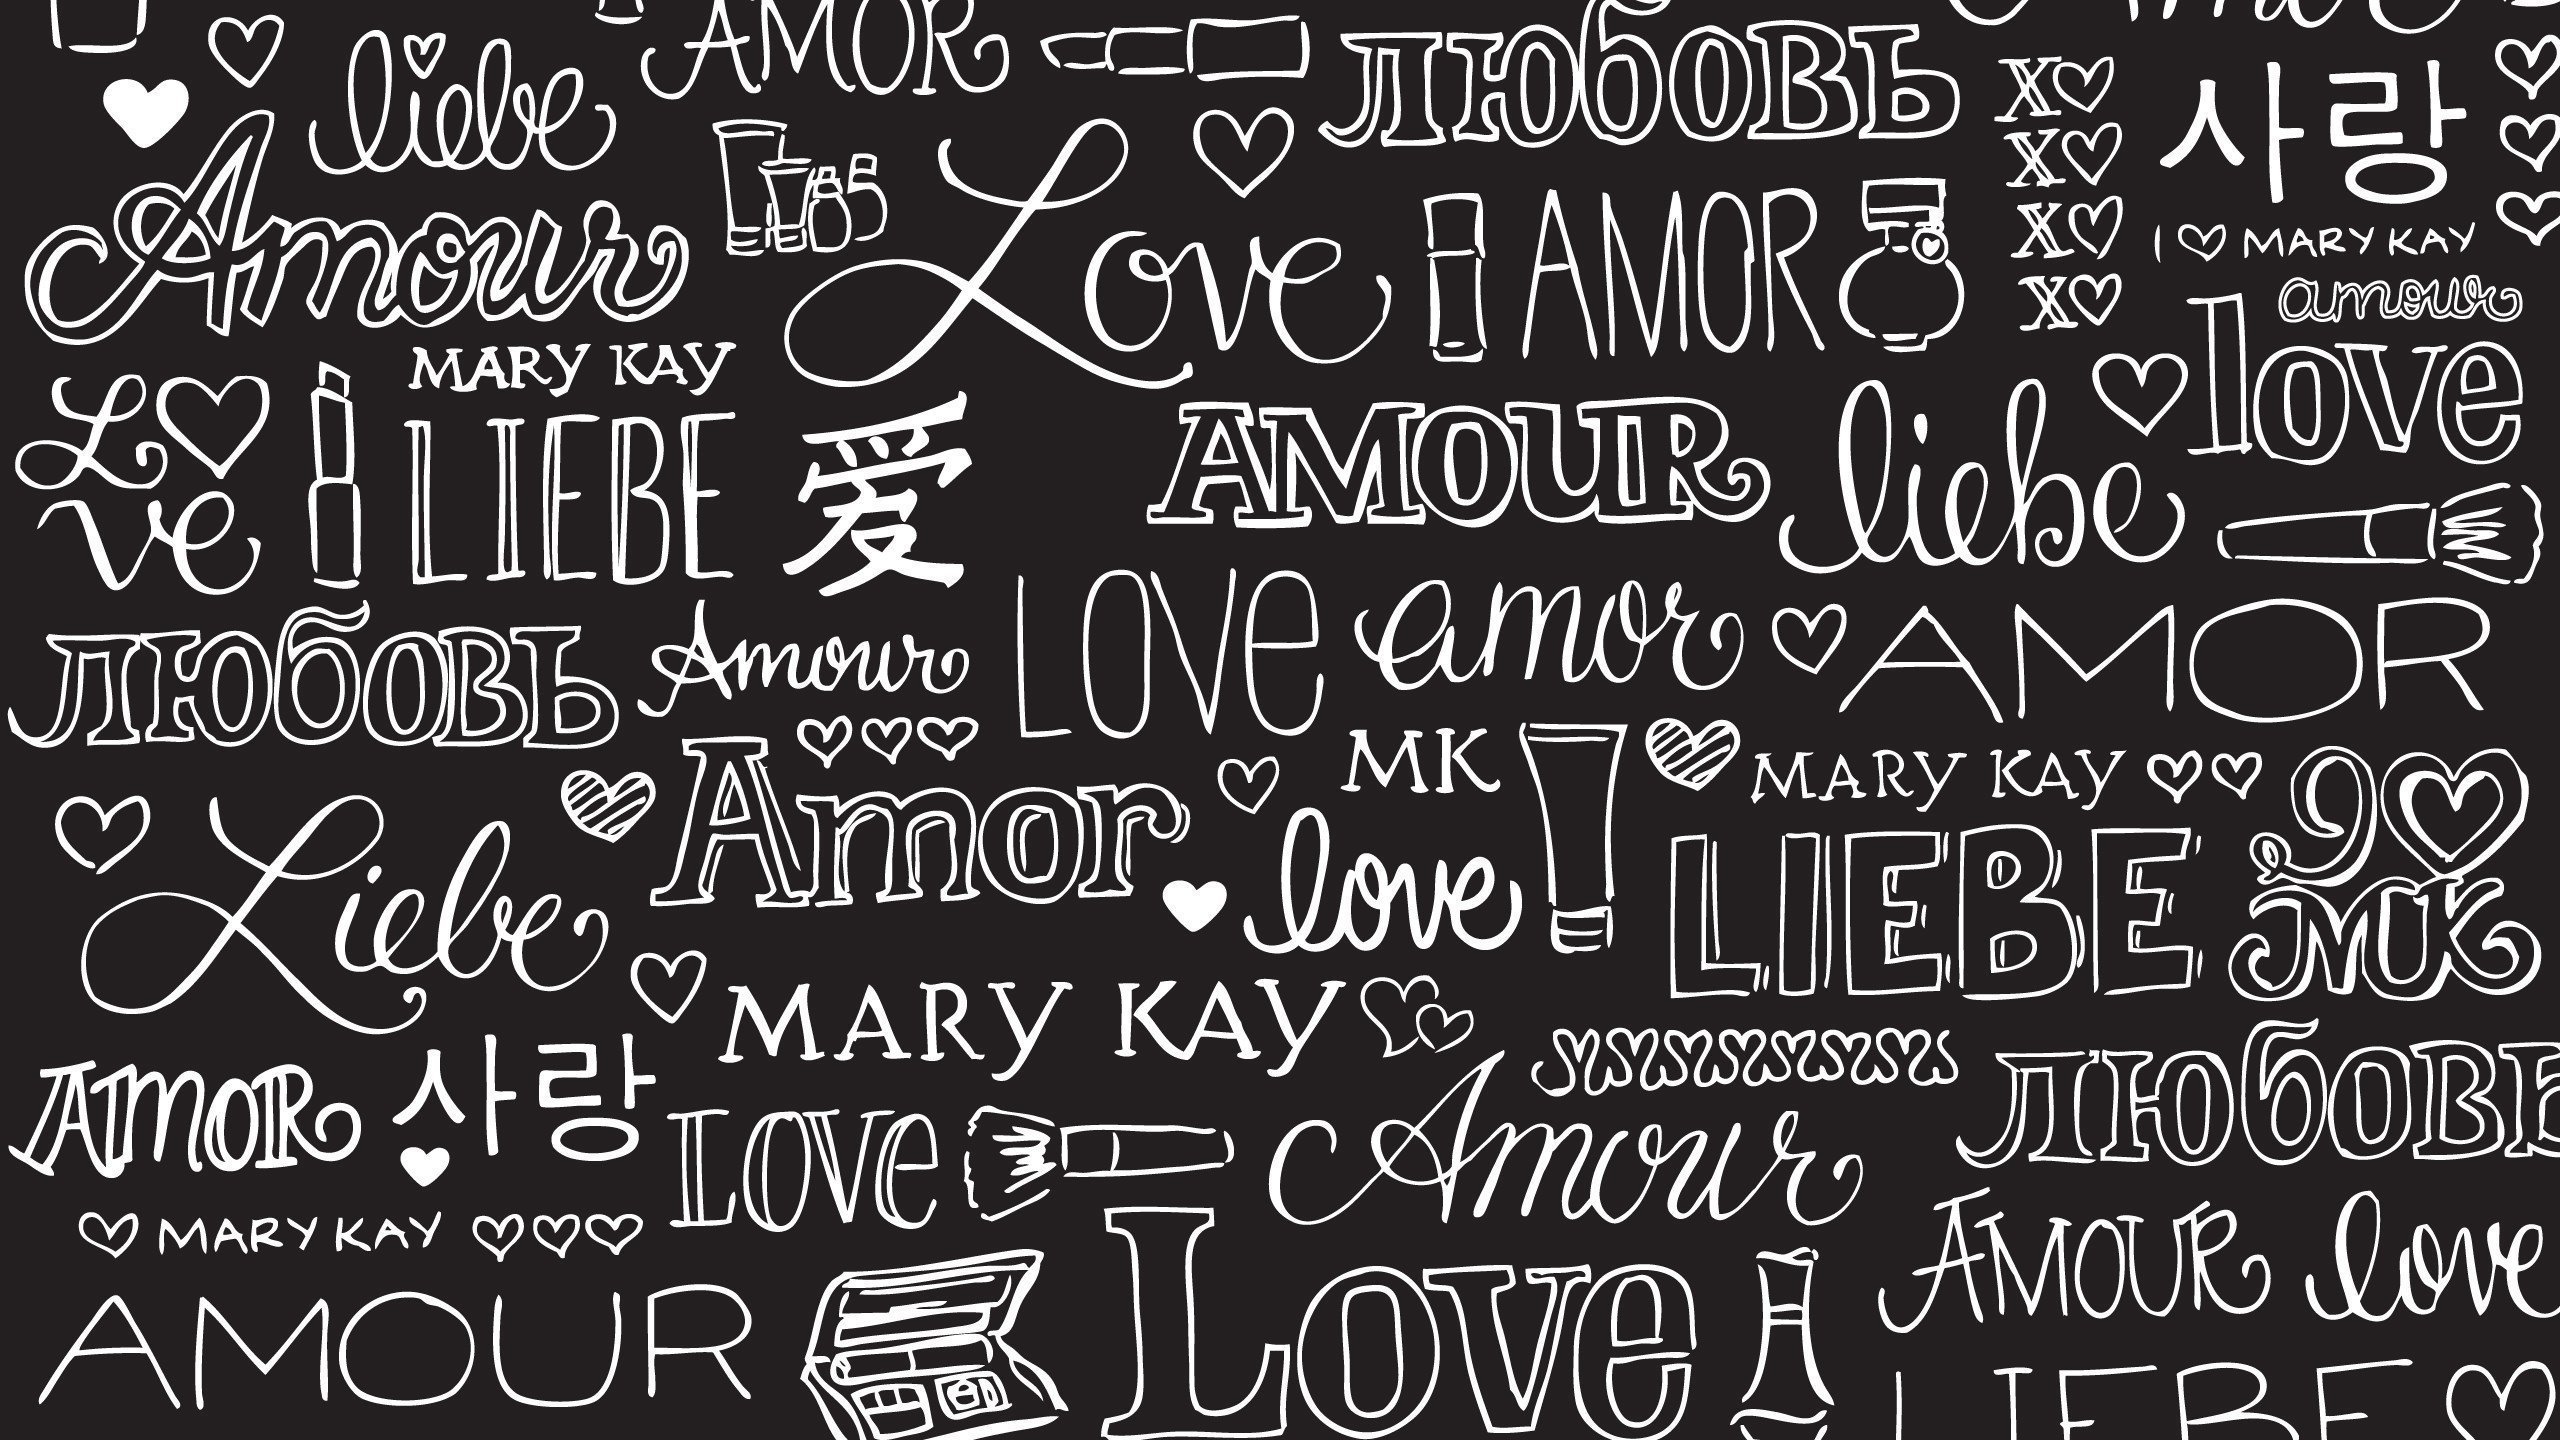 AMOR
любовь
liebe
X♡
X♡
X♡
X♡
사랑
I ♡ MARY KAY
Amour
Love
AMOR
amour
love
MARY KAY
L♡
ve
LIEBE
爱
AMOUR
liebe
любовь
Amour
LOVE
amor
AMOR
Amor
MK
MARY KAY
love
LIEBE
MK
Liebe
MARY KAY
AMOR
사랑
LOVE
Amour
любовь
MARY KAY
AMOUR
Love
AMOUR
love
LIEBE